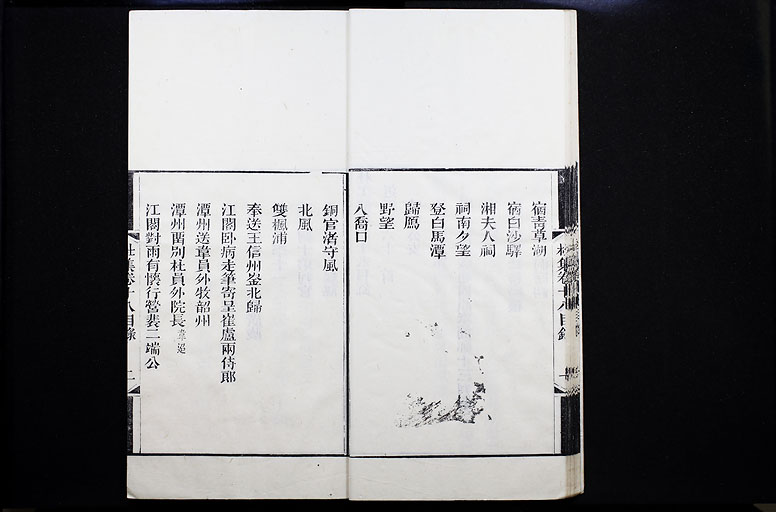 宿青草湖
宿白沙驛
湘夫人祠
祠南夕望
登白馬潭
歸鴈
野望
入喬口
銅官渚守風
北風
雙楓浦
奉送王信州崟北歸
江閣卧病走筆寄呈崔盧兩侍郎
潭州送韋員外牧韶州
潭州畱別杜員外院長 韋迢
江閣對雨有懷行營裴二端公
杜集卷十八目錄 二